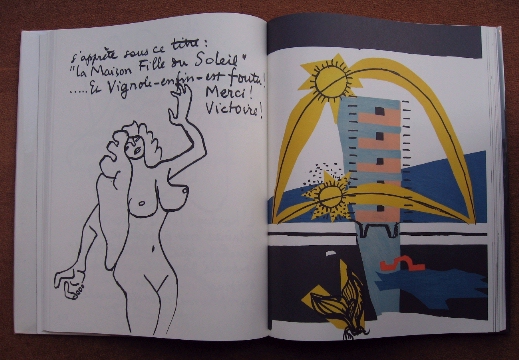 s'apprête sous ce titre :
"La Maison Fille du Soleil"
.....Et Vignole-enfin-est foutu !
Merci !
Victoire !